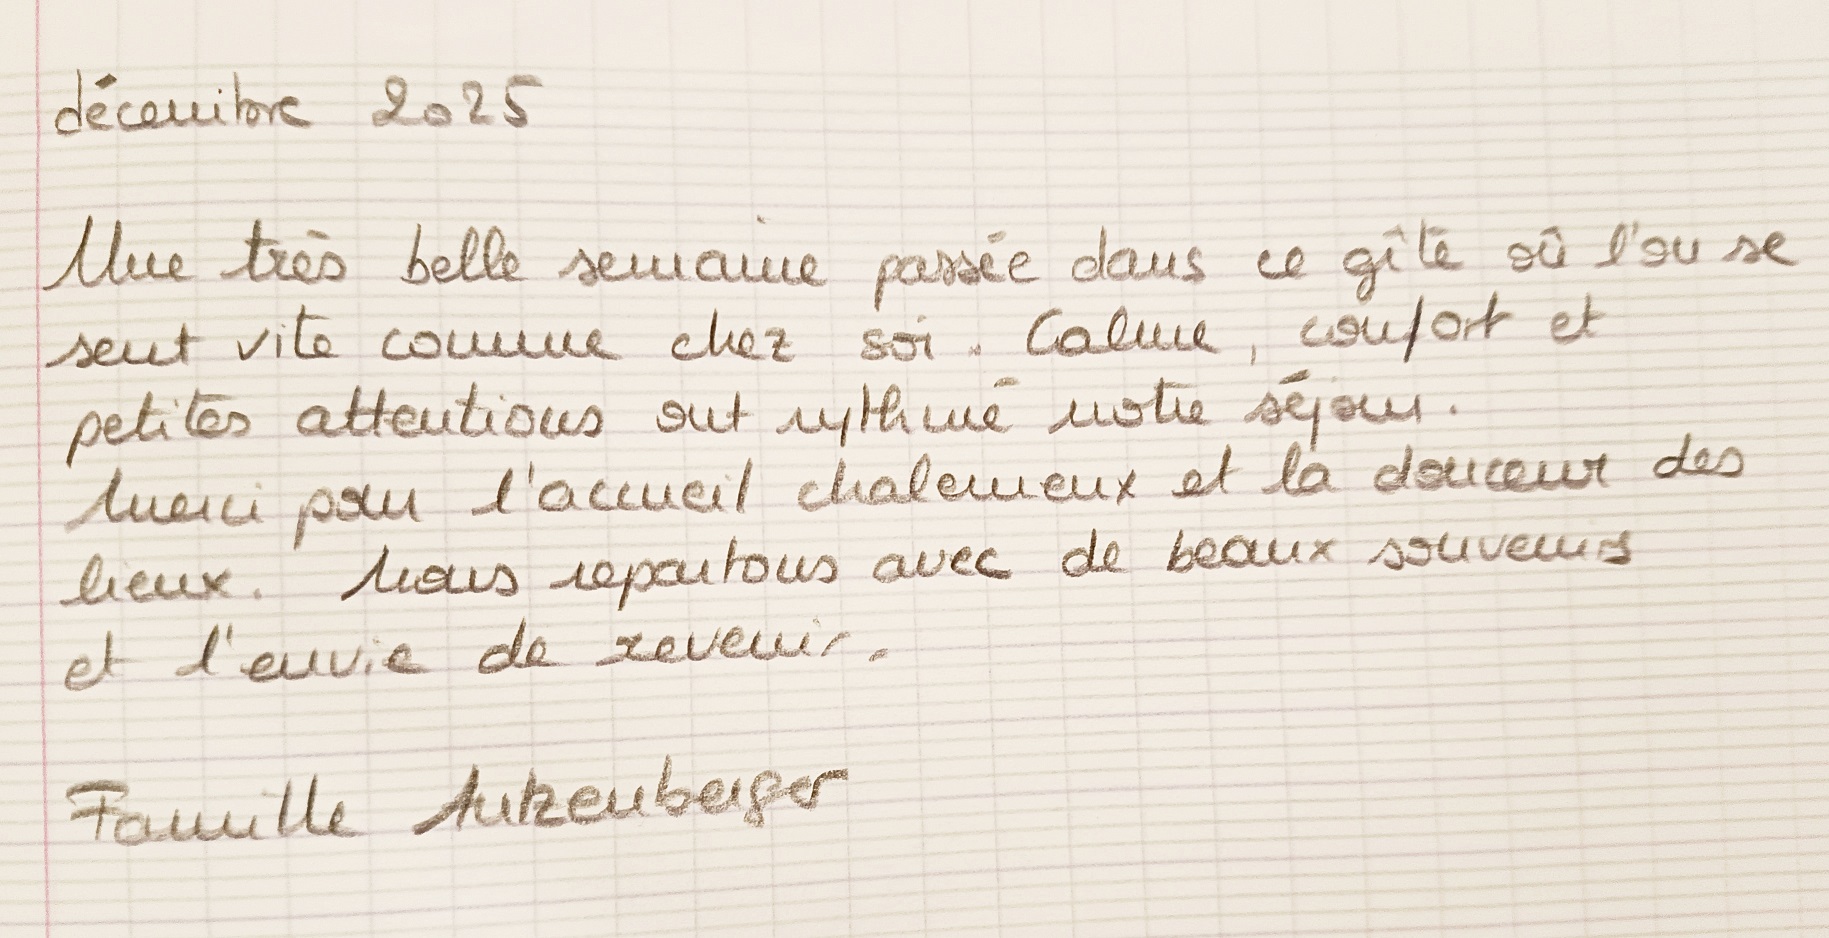 décembre 2025
Une très belle semaine passée dans ce gîte où l'on se
sent vite comme chez soi. Calme, confort et
petites attentions ont rythmé notre séjour.
Merci pour l'accueil chaleureux et la douceur des
lieux. Nous repartons avec de beaux souvenirs
et l'envie de revenir.
Famille